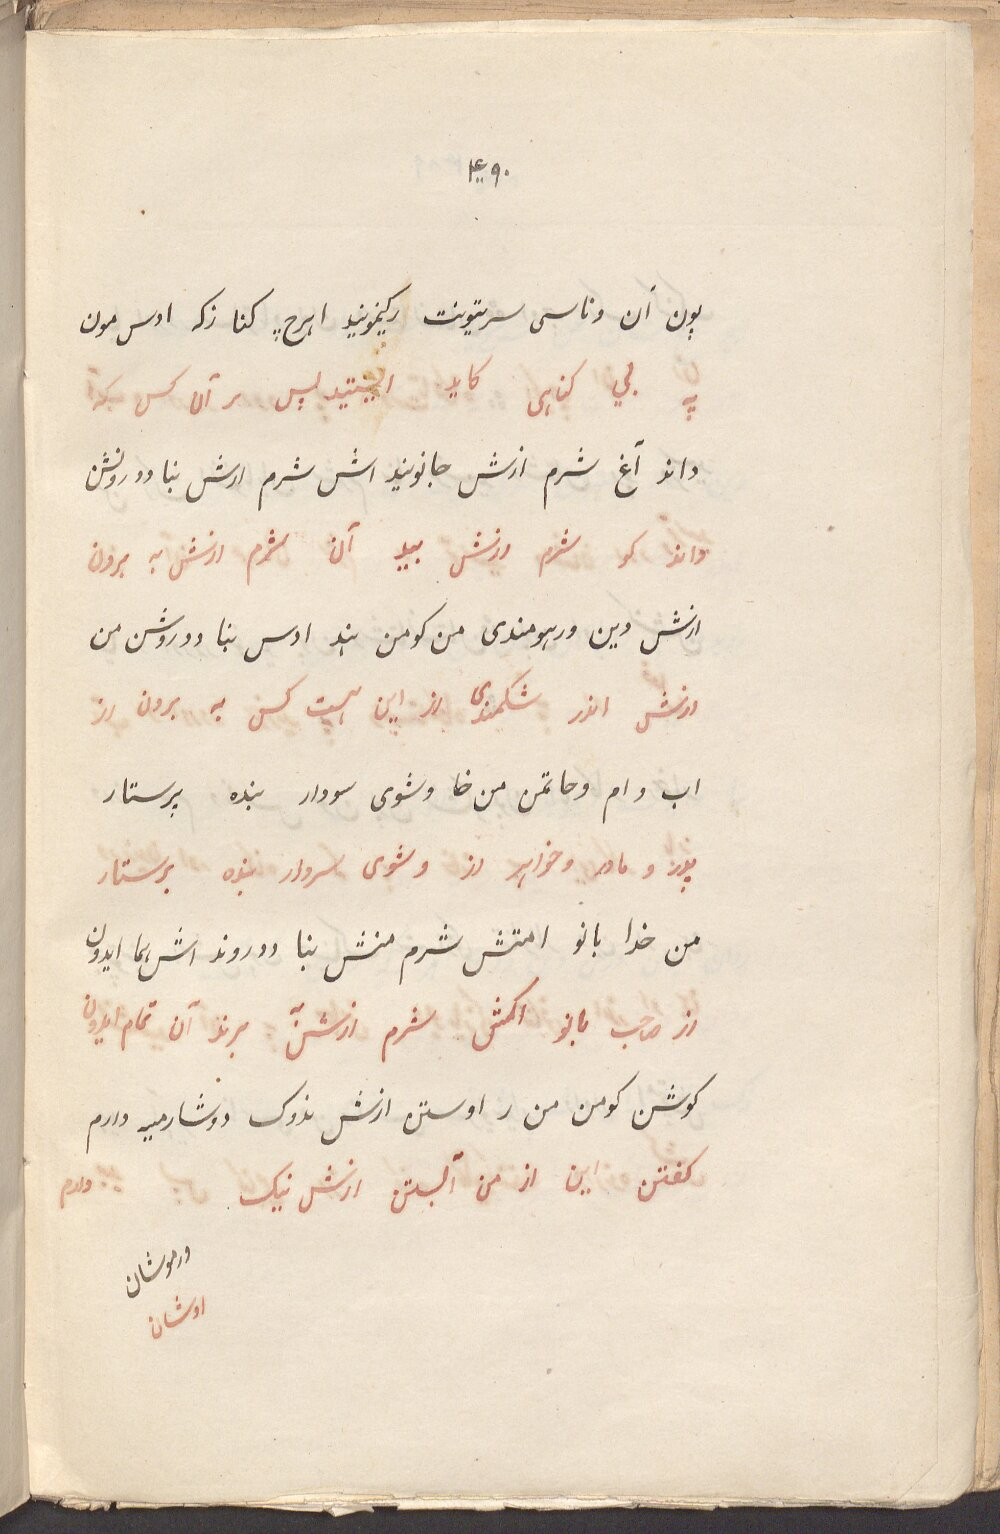 ۴۹۰
پون آن وناسی سریتونت ریخمونید اپرچ کنا زکه ادس مون
په بی کناهی کاید ایستید پس بر آن کس که
داند آغ شرم ازش جانونید اش شرم ازش بنا ددرونشن
داند کو شرم ازش بید آن شرم ازش به برون
ازش دین ورهومندی من کومن هند ادس بنا ددروشن من
ازش اندر شکمندی از این هست کس به برون از
اب و ام وخاتمن من خا وشوی سودار بنده پرستار
پدر و مادر وخواهر از وشوی سردار بنده پرستار
من خدا بانو امتش شرم منش بنا ددروند اش هما ایدون
از صاحب بانو اکش شرم ازش به برند آن تمام ایدون
کوشن کومن من ر اوستن ازش نذوک دوشارمیه دارم
کفتن این از من آبستن ازش نیک دارم
ورموشان
اوشان